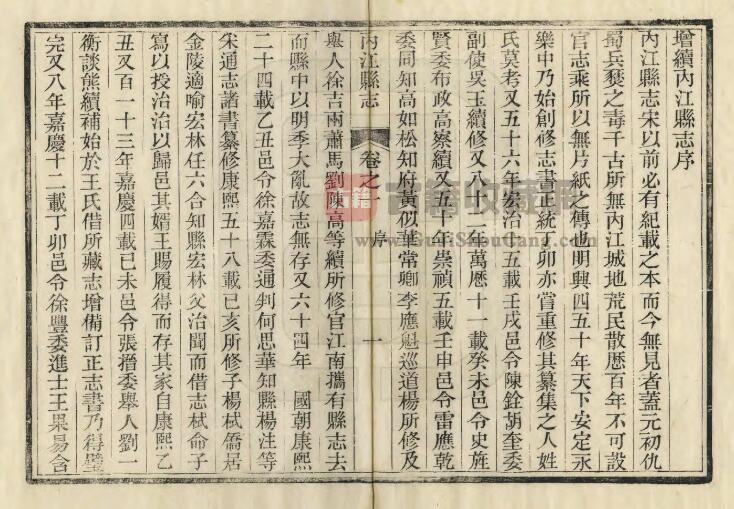 增續內江縣志序
內江縣志宋以前必有紀載之本而今無見者蓋元初仇
蜀兵燹之毒千古所無內江城地荒民散歷百年不可設
官志乘所以無片紙之傳也明興四五十年天下安定永
樂中乃始創修志書正統乙卯亦嘗重修其纂集之人姓
氏莫考又五十六年宏治十五載壬戌邑令陳銓胡奎委
副使吳玉續修又八十二年萬曆十一載癸未邑令史旌
賢委布政高察續又五十年崇禎五載壬申邑令雷應乾
委同知高如松知府黃似華常卿李應魁巡道楊所修及
內江縣志 卷之十 序 一
舉人徐吉兩蕭馬劉陳高等續所修官江南攜有縣志去
而縣中以明季大亂故志無存又六十四年 國朝康熙
二十四載乙丑邑令徐嘉霖委通判何思華知縣楊注等
宋通志諸書纂修康熙五十八載己亥所修子楊栻僑居
金陵適喻宏林任六合知縣宏林父治聞而借志栻命子
寫以授治治以歸邑其婿王賜履得而存其家自康熙乙
丑又百一十三年嘉慶四載己未邑令張搢委舉人劉一
衡談熊續補始於王氏借所藏志增備訂正志書乃得璧
完又八年嘉慶十二載丁卯邑令徐豐委進士王果易含
古籍
古籍收藏
www.GuJiShouCang.com